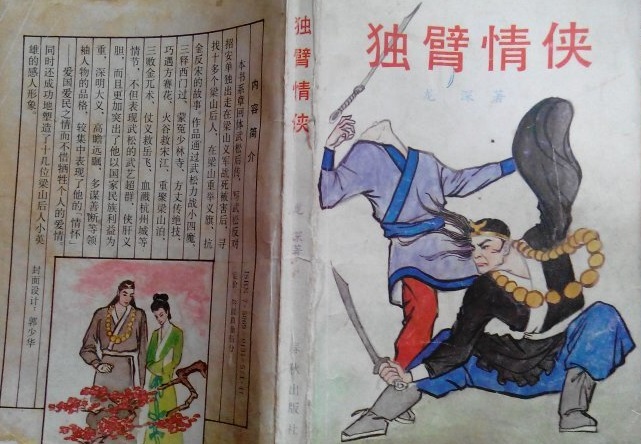 独臂情侠
龙深著
独臂情侠
龙深著
春秋出版社
内容简介
本书系章回体武松后传。写武松反对
招安单独出走在梁山义军战死被害后，寻
找十多个梁山后人，在梁山重举义旗，抗
金反宋的故事。作品通过武松力战小四魔、
三释西门过、蒙冤少林寺、方丈传绝技、
巧遇方赛花、火谷救宋江、重聚梁山泊、
三败金兀术、仗义救岳飞、血溅杭州城等
情节，不但表现武松的武艺超群、侠肝义
胆，而且更加突出了他以国家民族利益为
重，深明大义、高瞻远瞩、多谋善断等领
袖人物的品格，较集中表现了他的“情怀”
——爱国爱民之情而不惜牺牲个人的爱情。
同时还成功地塑造了十几位梁山后人小英
雄的感人形象。
封面设计：郭少华